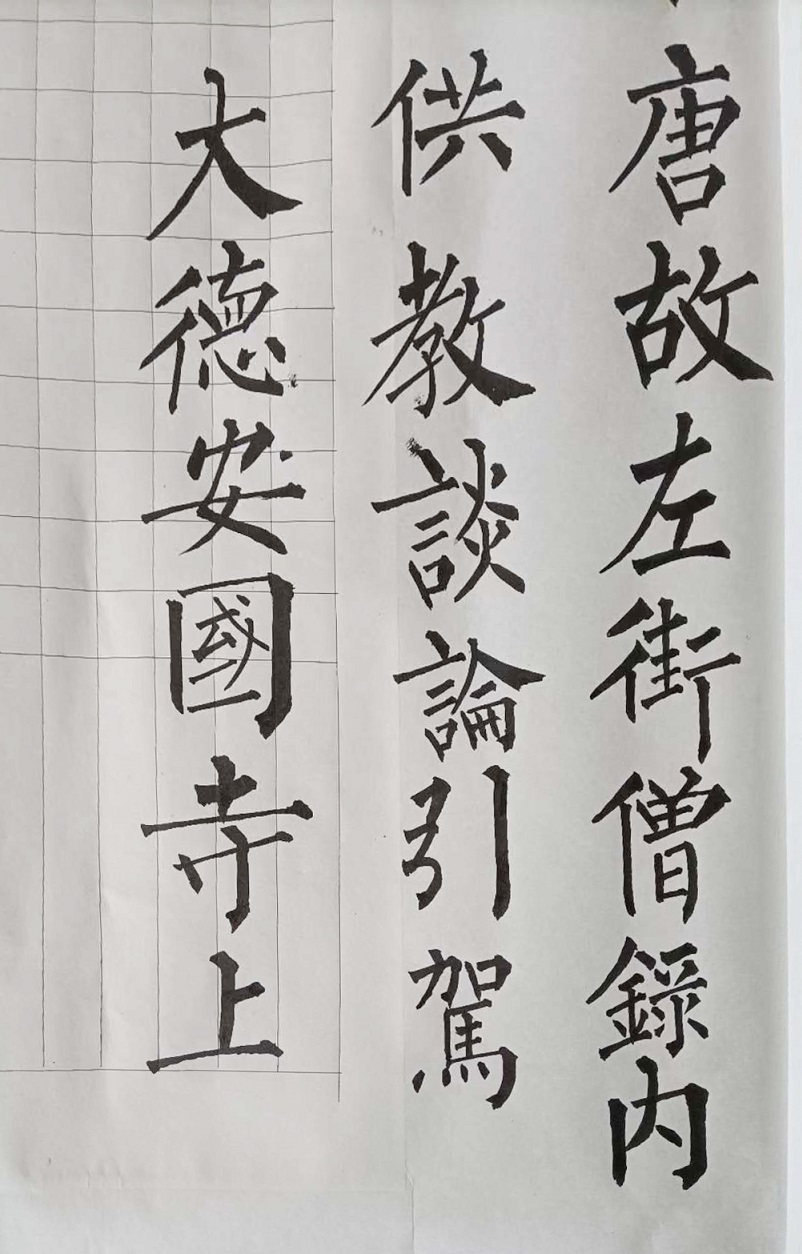 唐故左街僧錄內
供教談論引駕
大德安國寺上